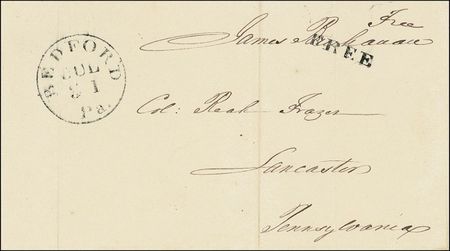 Free
James Buchanan
FREE
BEDFORD
JUL
31
Pa.
Col: Reah Frazer
Lancaster
Pennsylvania